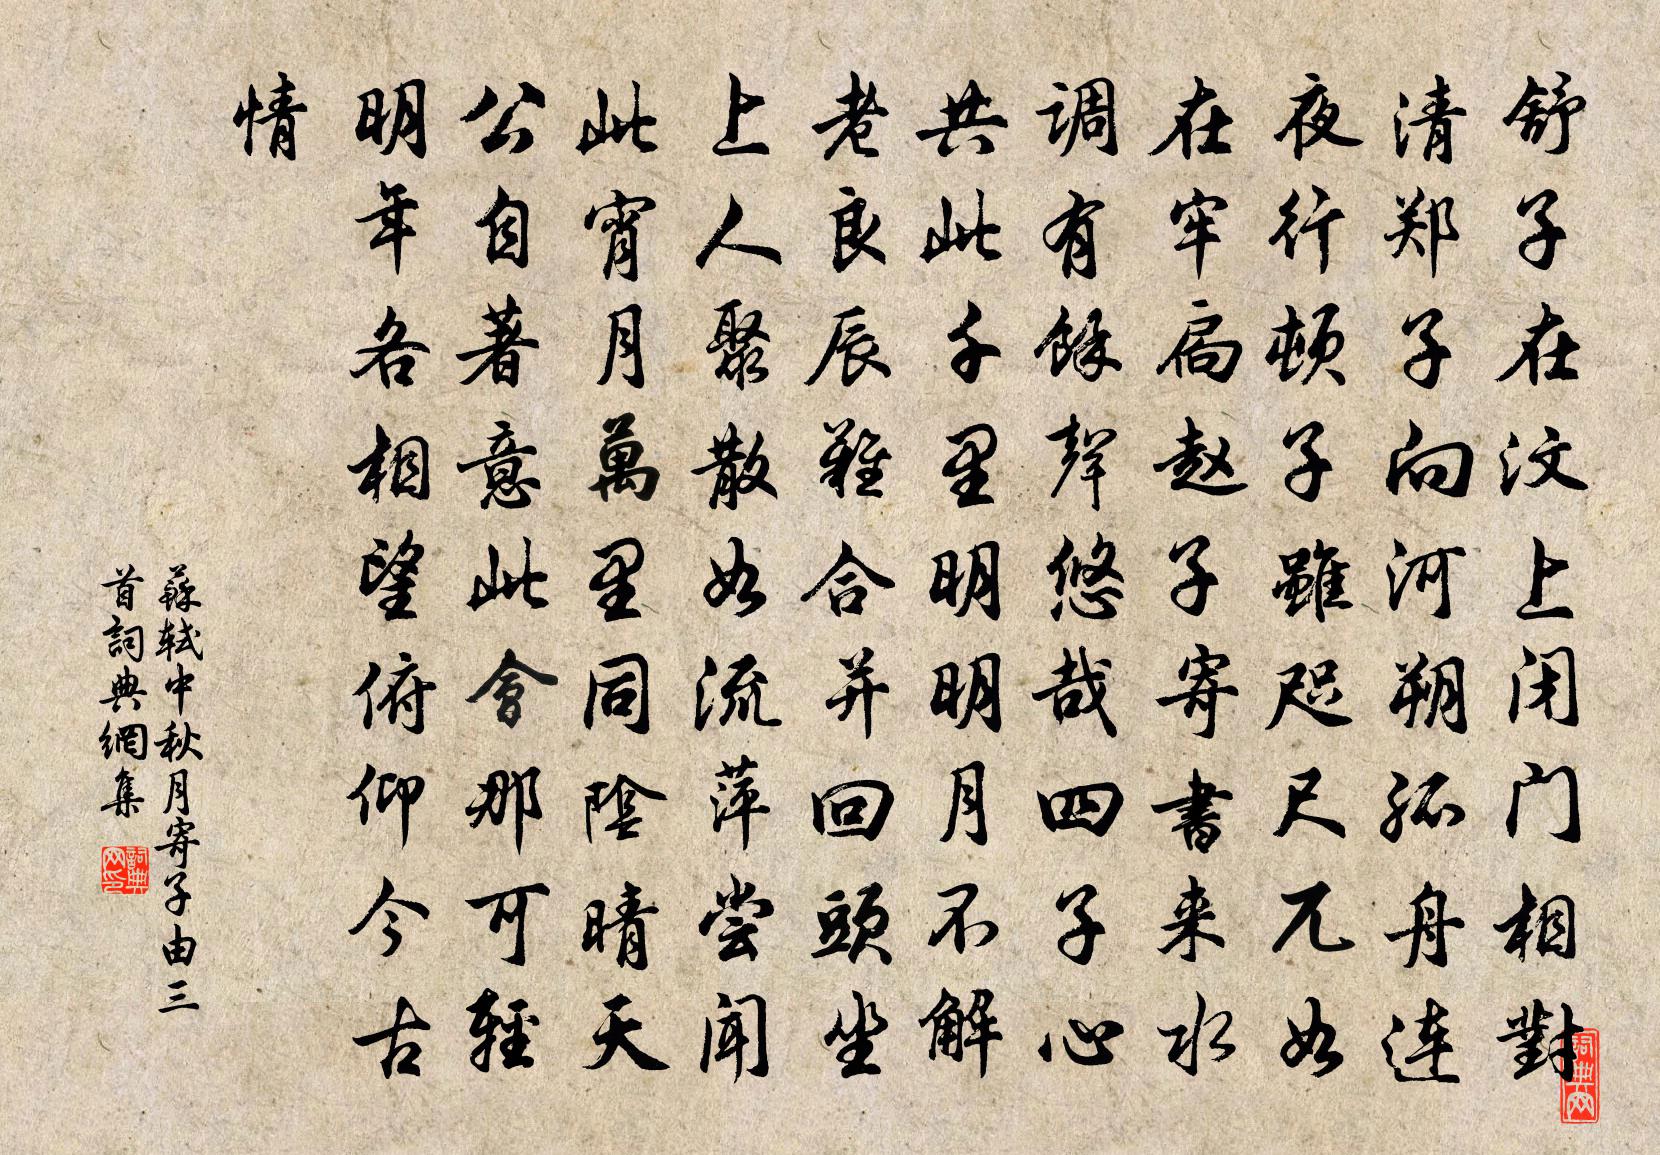 舒子在汶上闭门相對
清郑子向河朔孤舟连
夜行顿子虽咫尺兀如
在牢扃赵子寄書来水
调有餘聲悠哉四子心
共此千里明明月不解
老良辰難合并回頭坐
上人聚散如流萍尝闻
此宵月萬里同陰晴天
公自著意此會那可輕
明年各相望俯仰今古
情
蘇轼中秋月寄子由三
首詞典網集
詞典网印
詞典网